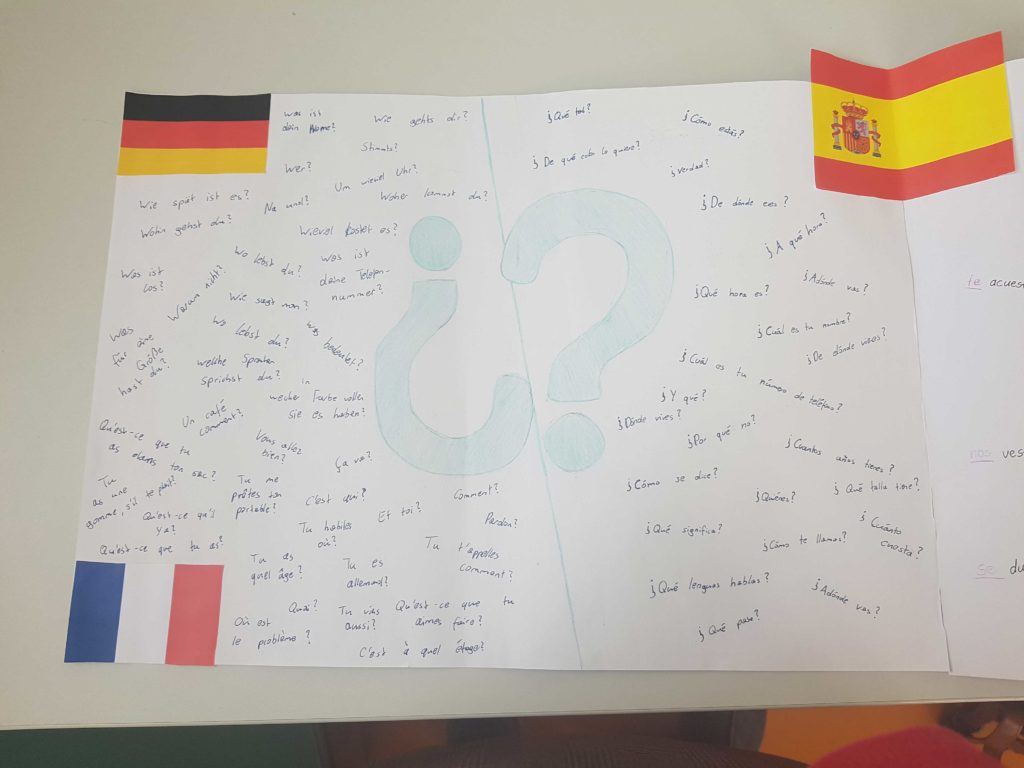 Was ist
dein Name?
Wie gehts dir?
Stimmts?
Wer?
Um wieviel Uhr?
Wie spät ist es?
Na und?
Woher kommst du?
Wohin gehst du?
Wieviel kostet es?
Wo lebst du?
Was ist
deine Telefon-
nummer?
Was ist
los?
Warum nicht?
Wie sagt man?
Was
für eine
Größe
hast du?
Wo lebst du?
Was bedeutet?
welche Sprachen
sprichst du?
in
welcher Farbe wollen
sie es haben?
Un café
comment?
Qu'est-ce que tu
as dans ton sac?
Vous allez
bien?
Ça va?
Tu
as une
gomme, s'il te plaît?
Tu me
prêtes ton
portable?
C'est qui?
Comment?
Qu'est-ce qu'il
y a?
Tu habites
où?
Et toi?
Pardon?
Qu'est-ce que tu as?
Tu as
quel âge?
Tu es
allemand?
Tu t'appelles
comment?
Quoi?
Où est
le problème?
Tu vas
aussi?
Qu'est-ce que tu
aimes faire?
C'est à quel étage?
¿Qué tal?
¿Cómo estás?
¿De qué color lo quiere?
¿verdad?
¿De dónde eres?
¿A qué hora?
¿Qué hora es?
¿Adónde vas?
¿Cuál es tu nombre?
¿De dónde vienes?
¿Cuál es tu número de teléfono?
¿Y qué?
¿Dónde vives?
¿Por qué no?
¿Cuantos años tienes?
¿Cómo se dice?
¿Quiénes?
¿Qué talla tiene?
¿Qué significa?
¿Cómo te llamas?
¿Cuánto
cuesta?
¿Qué lenguas hablas?
¿Adónde vas?
¿Qué pasa?
te acues
nos ves
se du